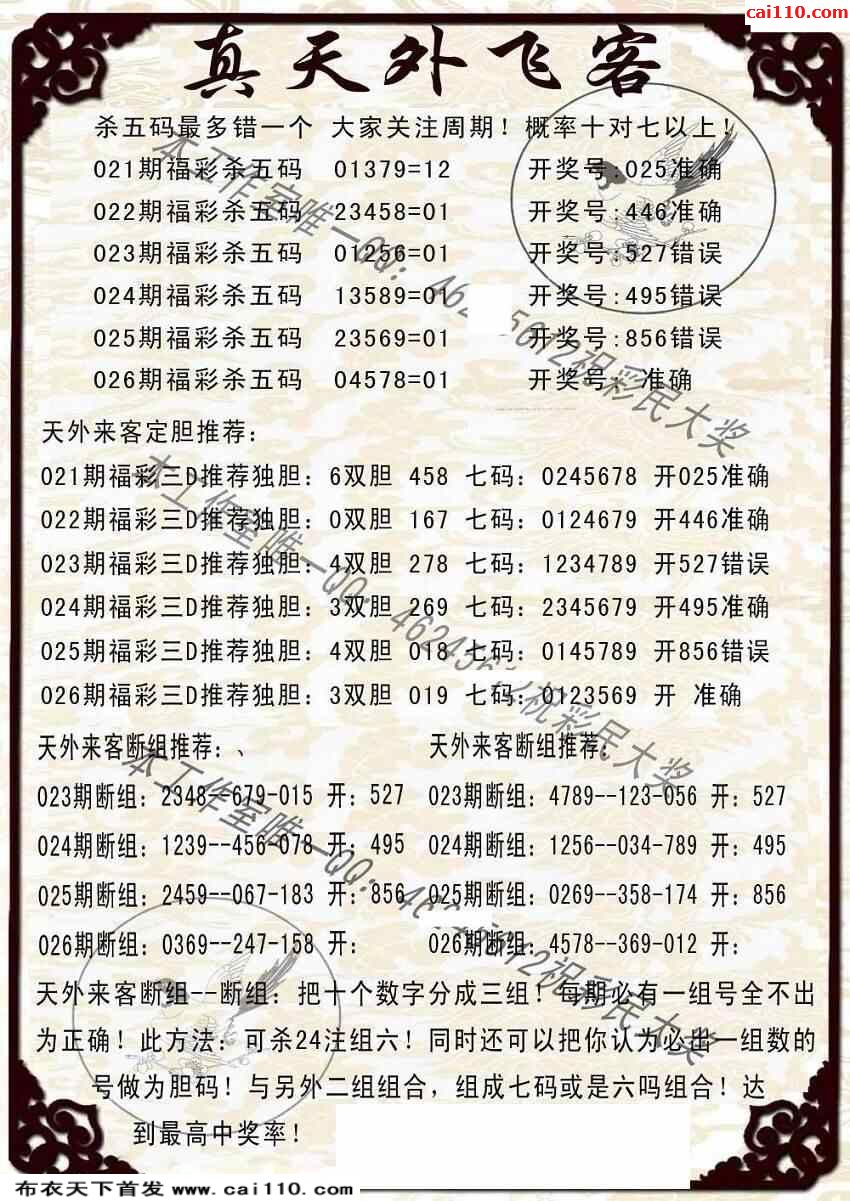 cai110.com
真天外飞客
杀五码最多错一个 大家关注周期！概率十对七以上！
021期福彩杀五码 01379=12 开奖号:025准确
022期福彩杀五码 23458=01 开奖号:446准确
023期福彩杀五码 01256=01 开奖号:527错误
024期福彩杀五码 13589=01 开奖号:495错误
025期福彩杀五码 23569=01 开奖号:856错误
026期福彩杀五码 04578=01 开奖号: 准确
天外来客定胆推荐：
021期福彩三D推荐独胆：6双胆 458 七码：0245678 开025准确
022期福彩三D推荐独胆：0双胆 167 七码：0124679 开446准确
023期福彩三D推荐独胆：4双胆 278 七码：1234789 开527错误
024期福彩三D推荐独胆：3双胆 269 七码：2345679 开495准确
025期福彩三D推荐独胆：4双胆 018 七码：0145789 开856错误
026期福彩三D推荐独胆：3双胆 019 七码：0123569 开 准确
天外来客断组推荐：、 天外来客断组推荐：
023期断组：2348--679-015 开：527 023期断组：4789--123-056 开：527
024期断组：1239--456-078 开：495 024期断组：1256--034-789 开：495
025期断组：2459--067-183 开：856 025期断组：0269--358-174 开：856
026期断组：0369--247-158 开： 026期断组：4578--369-012 开：
天外来客断组--断组：把十个数字分成三组！每期必有一组号全不出
为正确！此方法：可杀24注组六！同时还可以把你认为必出一组数的
号做为胆码！与另外二组组合，组成七码或是六吗组合！达
到最高中奖率！
布衣天下首发 www.cai110.com